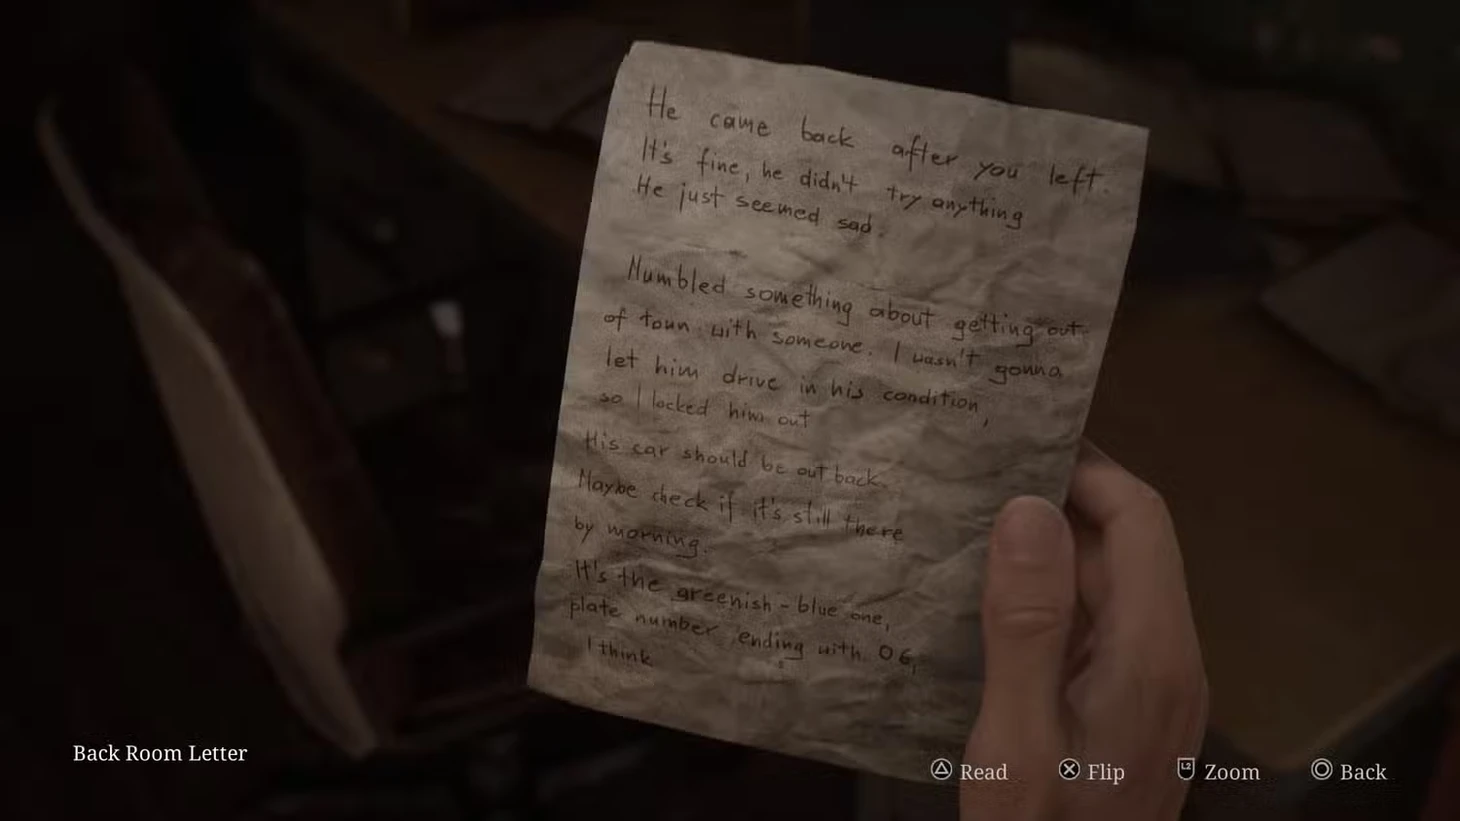 He came back after you left.
It's fine, he didn't try anything
He just seemed sad.
Mumbled something about getting out
of town with someone. I wasn't gonna
let him drive in his condition,
so I locked him out
His car should be out back.
Maybe check if it's still there
by morning.
It's the greenish-blue one,
plate number ending with 06,
I think
Back Room Letter
Read
Flip
L2 Zoom
Back